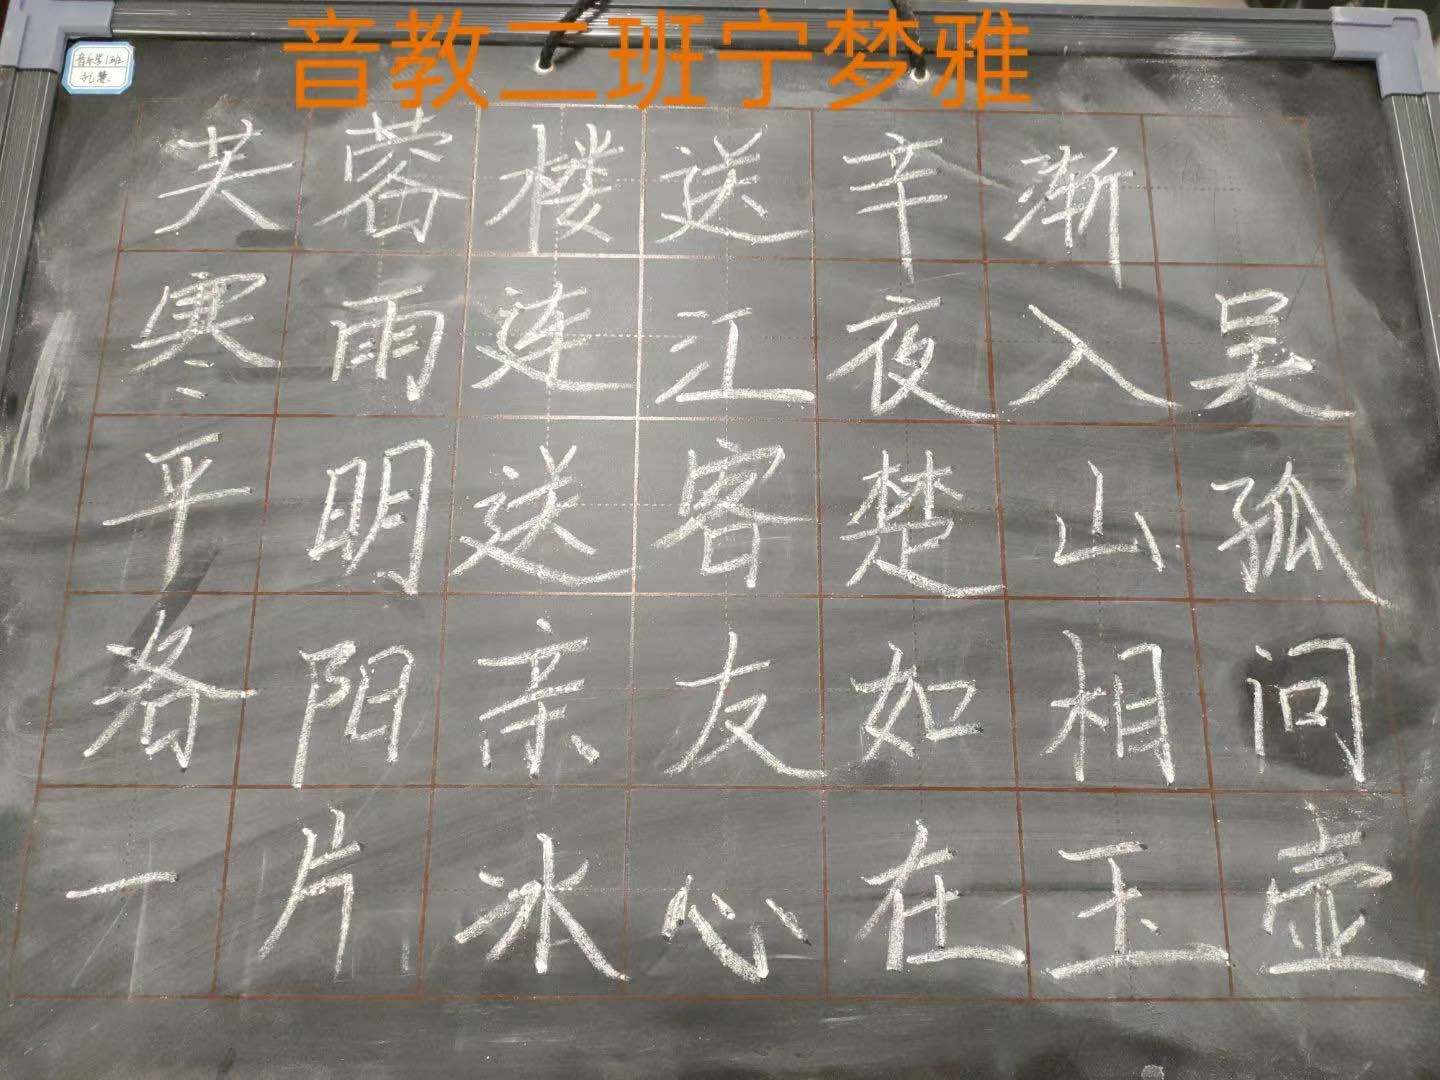 音教二班宁梦雅
音乐学1班
芙蓉楼送辛渐
寒雨连江夜入吴
平明送客楚山孤
洛阳亲友如相问
一片冰心在玉壶